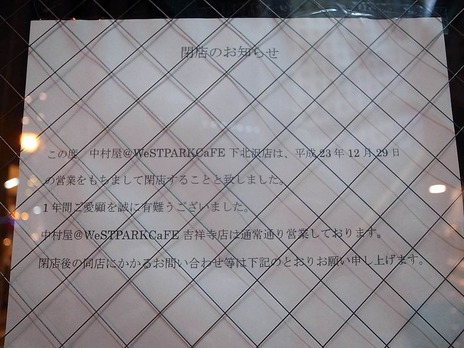 閉店のお知らせ
この度 中村屋@WeSTPARKCaFE 下北沢店は、平成 23 年 12 月 29 日
の営業をもちまして閉店することと致しました。
1 年間ご愛顧を誠に有難うございました。
中村屋@WeSTPARKCaFE 吉祥寺店は通常通り営業しております。
閉店後の同店にかかるお問い合わせ等は下記のとおりお願い申し上げます。